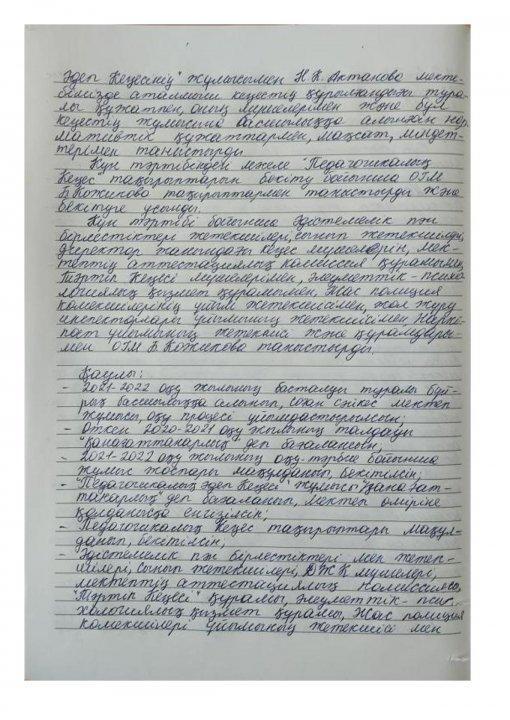 Әдеп Кеңесінің" жұмысымен Н.К. Актанова мекте-
бімізде аталмыш кеңестің құрылғандығы тура-
лы құжатпен, оның мүшелерімен және бұл
кеңестің жұмысына басшылыққа алынған нор-
мативтік құжаттармен, мақсат, міндет-
терімен таныстырды.
Күн тәртібіндегі мәселе "Педагогикалық
Кеңес" тақырыптарын бекіту бойынша ОІМ
Б Кожикова тақырыптармен таныстырды және
бекітуге ұсынды.
Күн тәртібі бойынша Әдістемелік пән
бірлестіктері жетекшілері, сынып жетекшілері,
Директор жанындағы кеңес мүшелерін, мек-
тептің аттестациялық комиссия құрамымен,
Тәртіп Кеңесі мүшелерімен, әлеуметтік-психо-
логиялық қызмет құрамымен, Жас полиция
көмекшілерінің ұйым жетекшісімен, жол жүру
инспекторлары ұйымының жетекшісімен Нарко-
пост ұйымының жетекшісі және құрамдары-
мен ОІМ Б Кожикова таныстырды.
Қаулы:
- 2021-2022 оқу жылының басталуы туралы бұй-
рық басшылыққа алынып, соған сәйкес мектеп
жұмысы, оқу процесі ұйымдастырылсын,
- Өткен 2020-2021 оқу жылының талдауы
"қанағаттанарлық" деп бағалансын,
- 2021-2022 оқу жылының оқу-тәрбие бойынша
жұмыс жоспары мақұлданып, бекітілсін;
- "Педагогикалық әдеп Кеңесі" жұмысы "қанағат-
танарлық" деп бағаланып, мектеп өміріне
қолданысқа енгізілсін;
- Педагогикалық Кеңес тақырыптары мақұл-
данып, бекітілсін;
- Әдістемелік пән бірлестіктері мен жетек-
шілері, сынып жетекшілері, ДЖК мүшелері,
мектептің аттестациялық комиссиясы,
"Тәртіп Кеңесі" құрамы, Әлеуметтік-псих-
хологиялық қызмет құрамы, Жас полиция
көмекшілері ұйымының жетекшісі мен